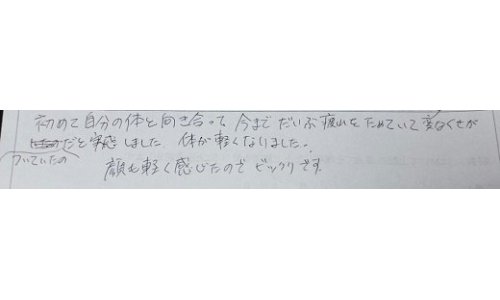 初めて自分の体と向き合って 今まで だいぶ疲れをためていて変なくせが
ついていたのだと実感しました 体が軽くなりました。
顔も軽く感じたので ビックリです。